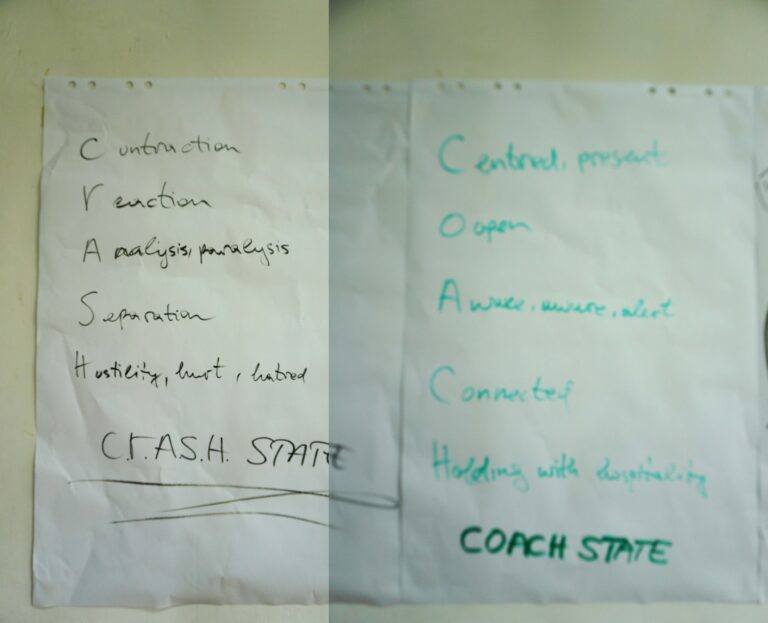 Contraction
reaction
Analysis, paralysis
Separation
Hostility, hurt, hatred
C.r.A.S.H. STATE
Centred, present
O open
Aware, aware, alert
Connected
Holding with hospitality
COACH STATE